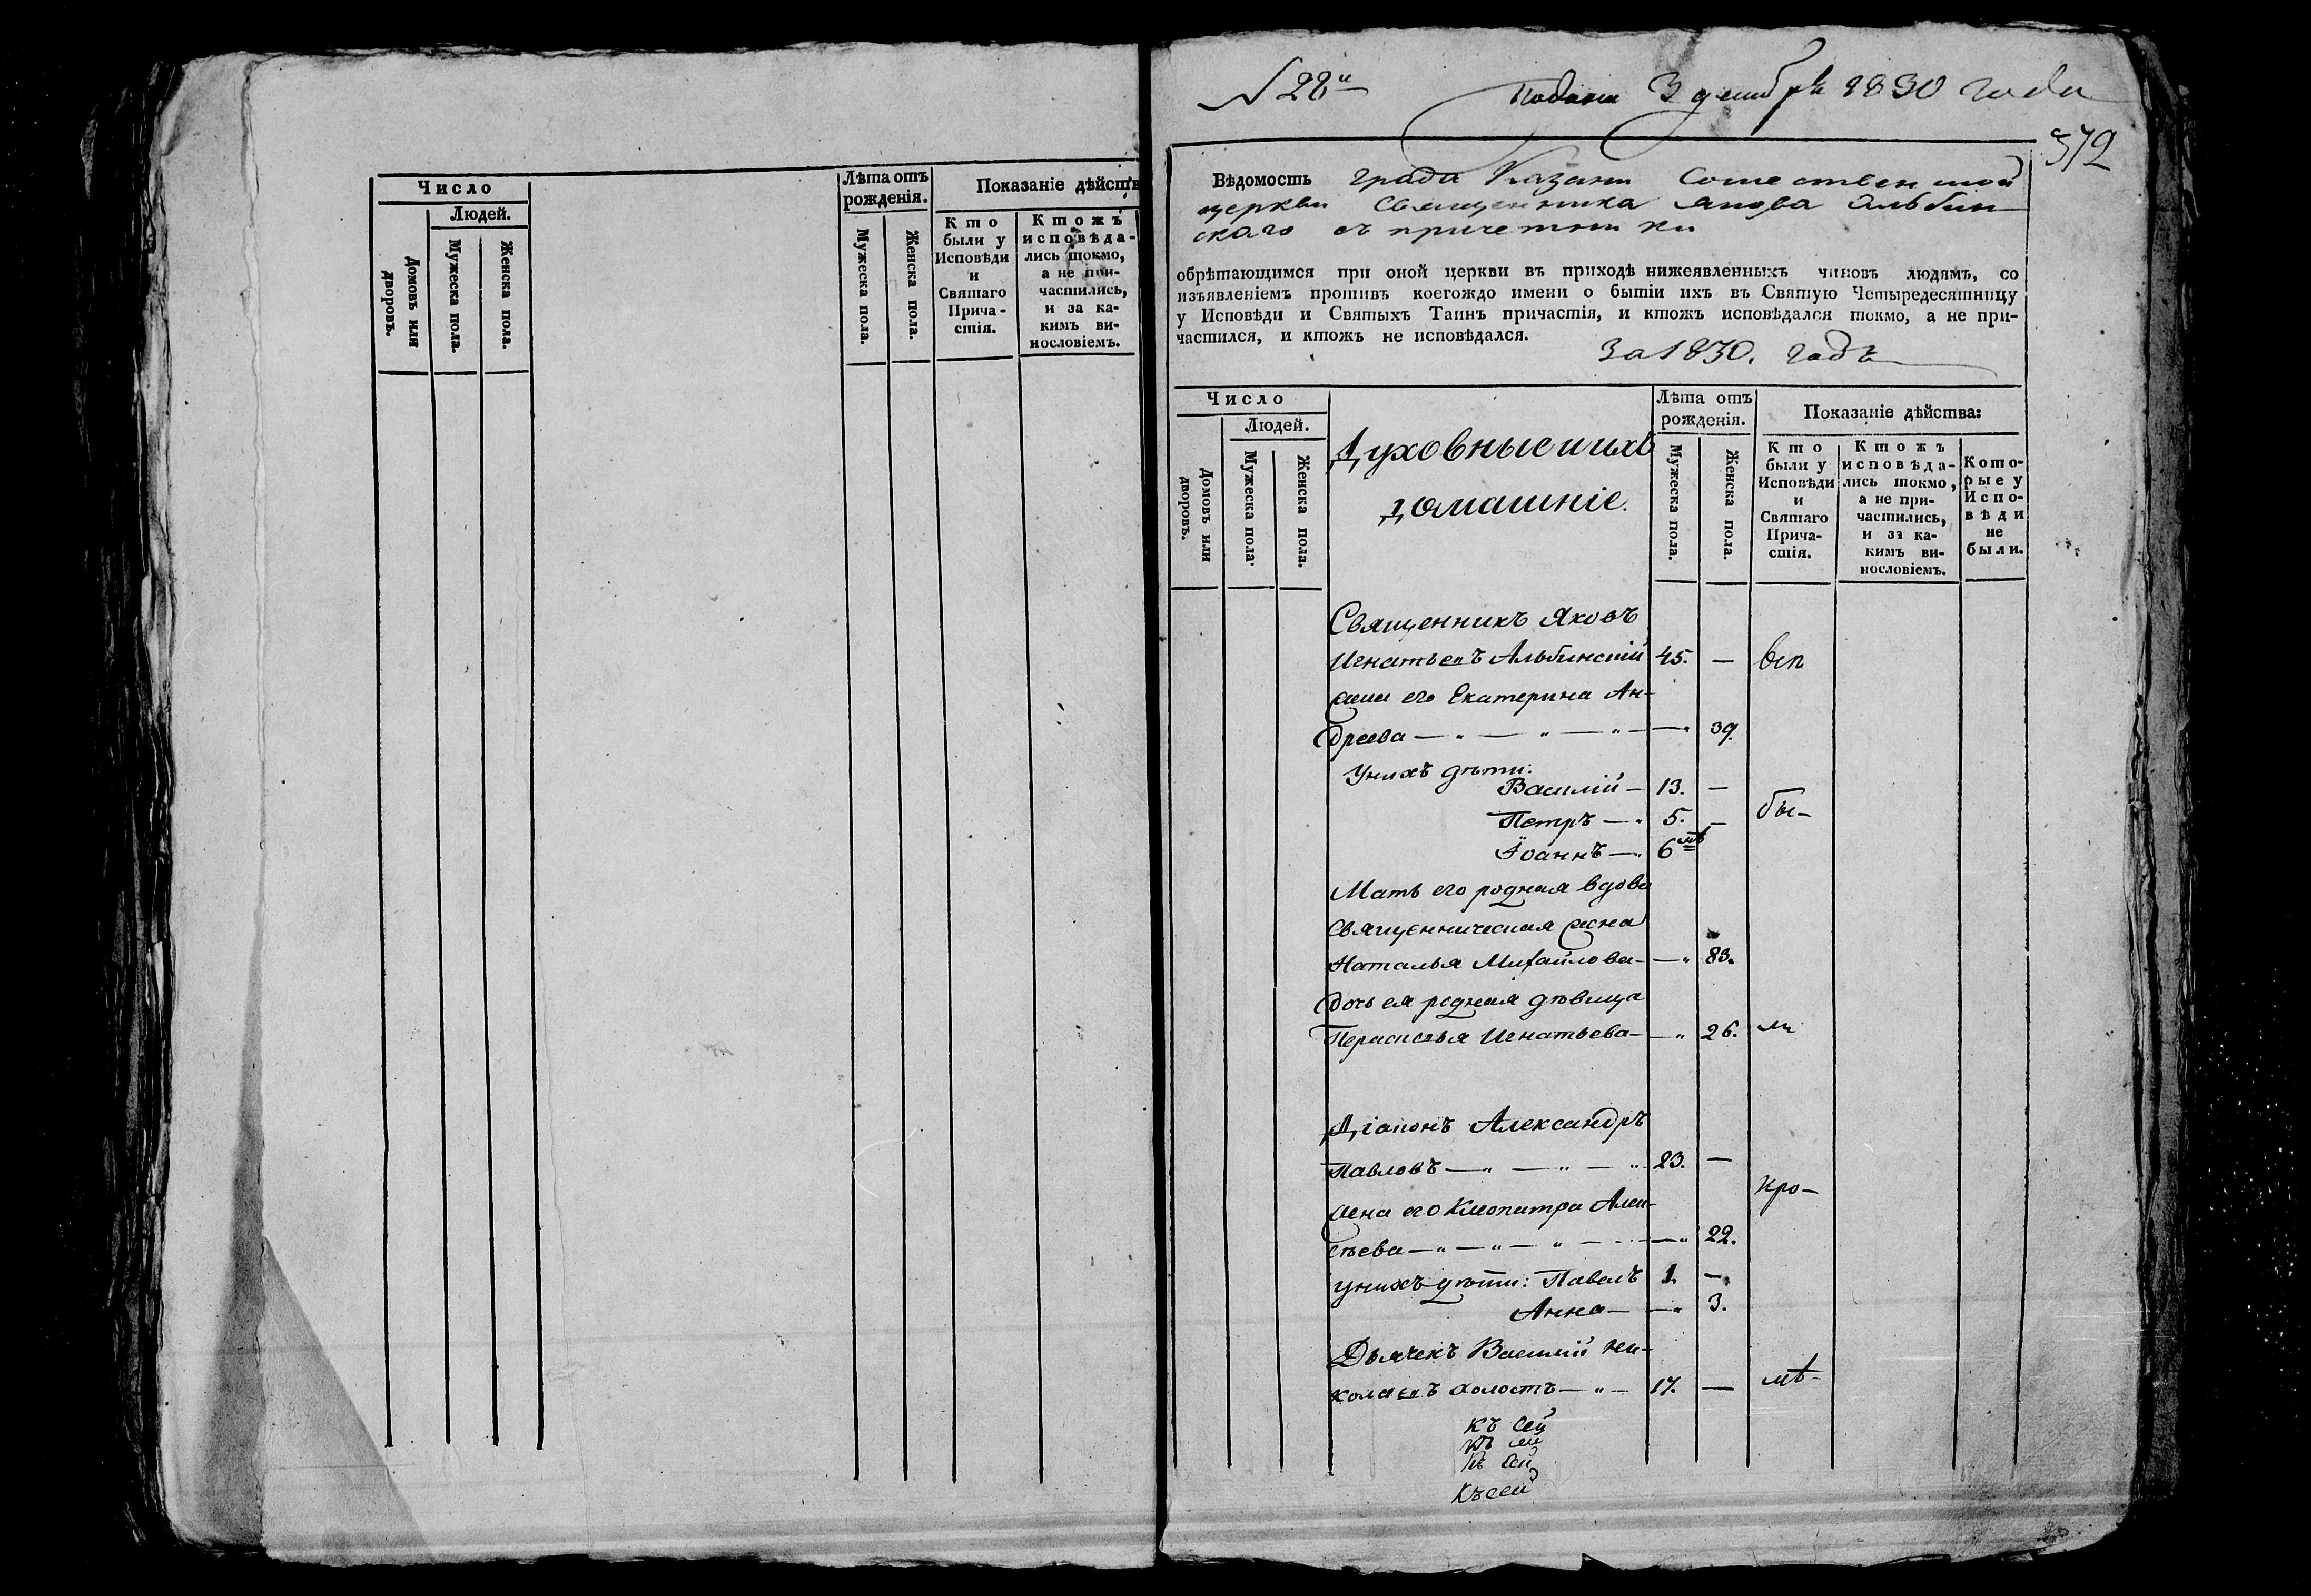 Число
Людей.
Домовъ или дворовъ.
Мужеска пола.
Женска пола.
Лѣта отъ
рожденія.
Мужеска пола.
Женска пола.
Показаніе дѣйств
Кто
были у
Исповѣди
и
Святаго
Прича-
стія.
Ктожъ
исповѣда-
лись токмо,
а не при-
частились,
и за ка-
кимъ ви-
нословіемъ.
№ 28й
Подана 3 декабря 1830 года
372
Вѣдомость града Казани Сошественской
церкви Священника Якова Альбин-
скаго съ причетники
обрѣтающимся при оной церкви въ приходѣ нижеявленныхъ чиновъ людямъ, со
изъявленіемъ противъ коегождо имени о бытіи ихъ въ Святую Четыредесятницу
у Исповѣди и Святыхъ Таинъ причастія, и ктожъ исповѣдался токмо, а не при-
частился, и ктожъ не исповѣдался.
За 1830. годъ
Число
Людей.
Домовъ или дворовъ.
Мужеска пола.
Женска пола.
Духовные и ихъ
домашніе.
Лѣта отъ
рожденія.
Мужеска пола.
Женска пола.
Показаніе дѣйства:
Кто
были у
Исповѣди
и
Святаго
Прича-
стія.
Ктожъ
исповѣда-
лись токмо,
а не при-
частились,
и за ка-
кимъ ви-
нословіемъ.
Кото-
рые у
Испо-
вѣди
не
были.
Священникъ Яковъ
Игнатьевъ Альбинскій 45. — всѣ
жена его Екатерина Ан-
дреева — 39.
У нихъ дѣти:
Василій — 13. —
Петръ — 5. — бы-
Іоаннъ — 6
Мать его родная вдова
священническая жена
Наталья Михайлова — 83.
Дочь ея родная дѣвица
Перасковья Игнатьева — 26. ли
Діаконъ Александръ
Павловъ — 23. —
кро-
жена его Клеопатра Алек-
сѣева — 22.
У нихъ дѣти: Павелъ 1. —
Анна — 3.
Дьячекъ Василій Ни-
колаевъ холостъ — 17. — мѣ-
къ сей
къ сей
къ сей
къ сей